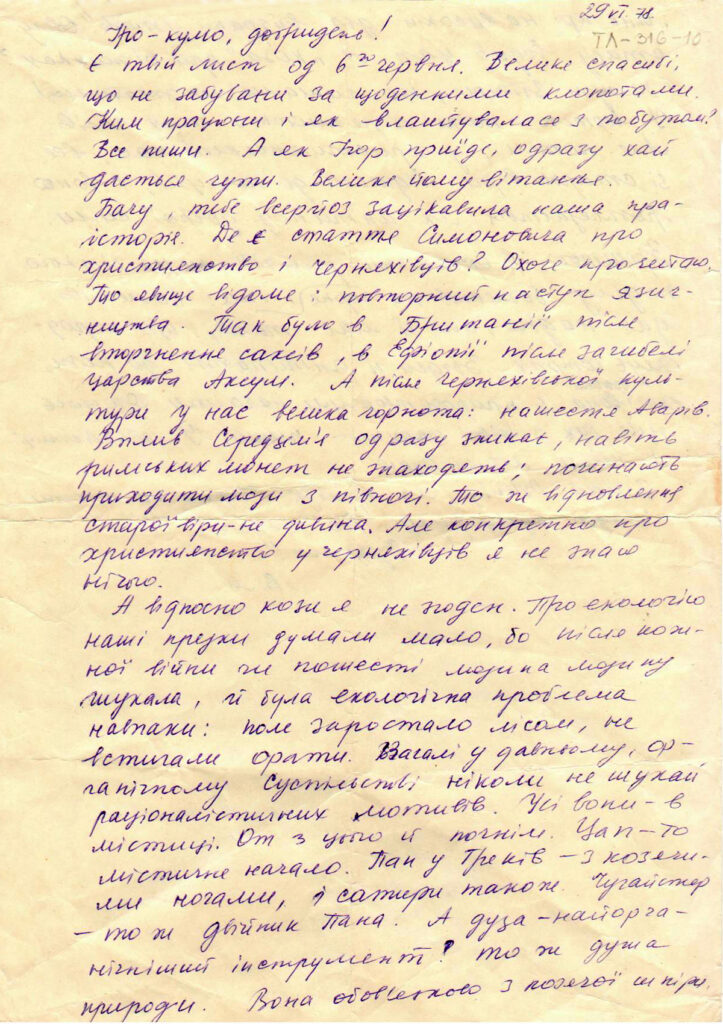 29 VI 78.
ТЛ-316-10
Гро-кумо, добридень!
Є твій лист од 6 го червня. Велике спасибі,
що не забувани за щоденними клопотами.
Ким працюєш і як влаштувалася з побутом?
Все пиши. А як Ігор приїде, одразу хай
дасться чути. Велике йому вітання.
Бачу, тебе всерйоз зацікавила наша пра-
історія. Де є стаття Симоновича про
християнство і черняхівців? Охоче прочитаю.
То явище відоме: повторний наступ язич-
ництва. Так було в Британії після
вторгнення саксів, в Ефіопії після загибелі
царства Аксум. А після черняхівської куль-
тури у нас велика чорнота: нашестя Аварів.
Вплив Середзем'я одразу зникає, навіть
римських монет не знаходять; починають
приходити люди з півночі. То ж відновлення
старої віри – не дивина. Але конкретно про
християнство у черняхівців я не знаю
нічого.
А відносно кози я не згоден. Про екологію
наші предки думали мало, бо після кож-
ної війни чи пошесті людина людину
шукала, й була екологічна проблема
навпаки: поле заростало лісом, не
встигали орати. Взагалі у давньому, ор-
ганічному суспільстві ніколи не шукай
раціоналістичних мотивів. Усі вони – в
містиці. От з цього й почнім. Цап – то
містичне начало. Пан у Греків – з козячи-
ми ногами, і сатири також. Чугайстер
– то ж двійник Пана. А дуда – найорга-
нічніший інструмент? то ж душа
природи. Вона обов'язково з козячої шкіри.